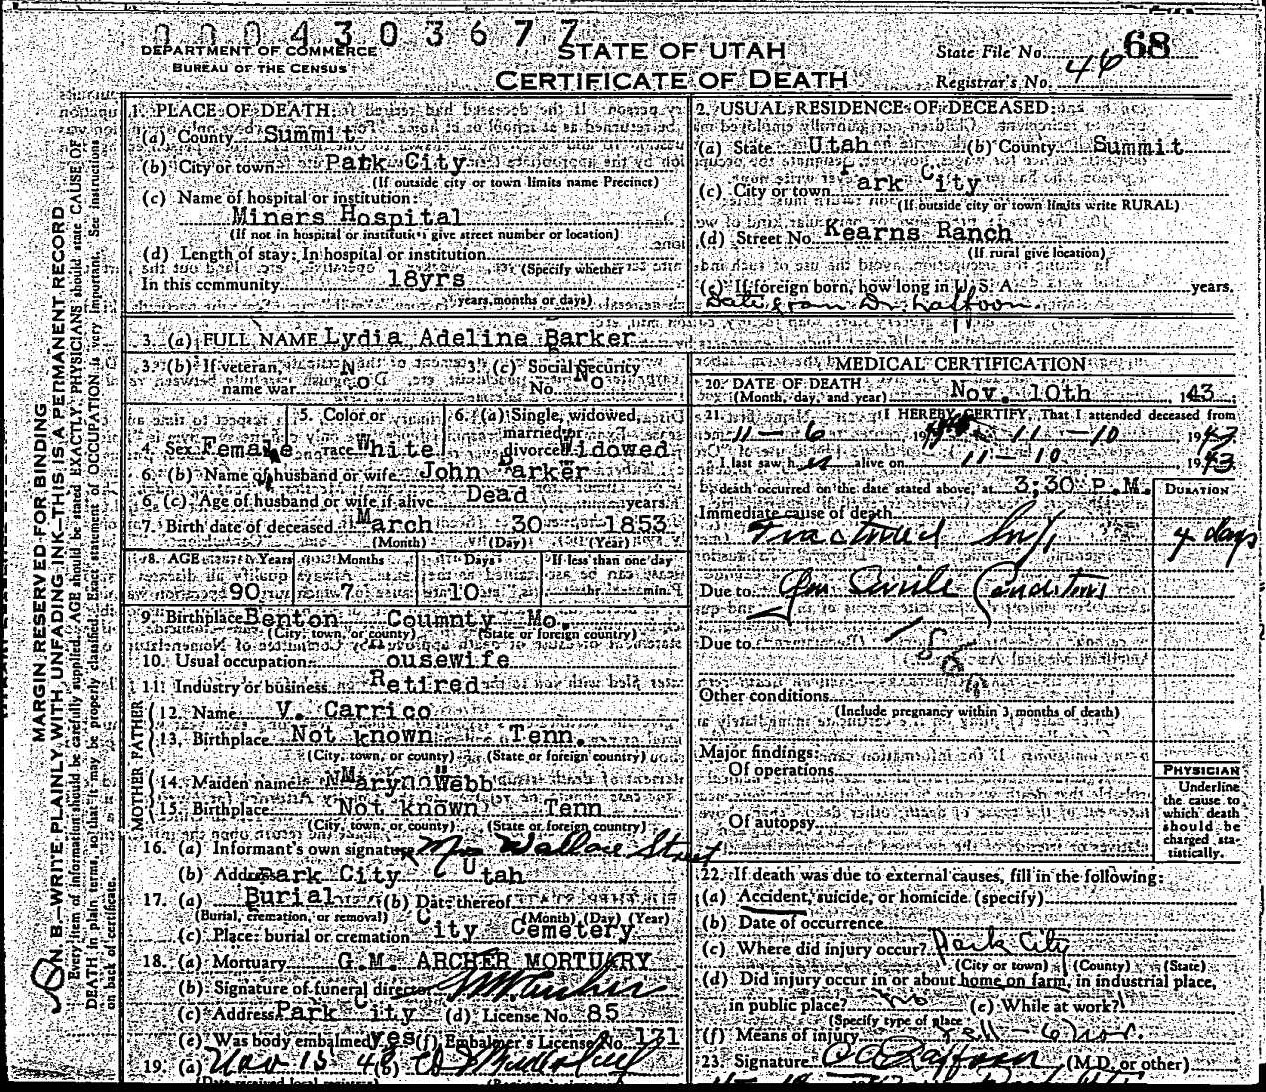 0004303677
DEPARTMENT OF COMMERCE
BUREAU OF THE CENSUS
STATE OF UTAH
CERTIFICATE OF DEATH
State File No. 68
Registrar's No. 46
MARGIN RESERVED FOR BINDING
N. B.—WRITE PLAINLY WITH UNFADING INK—THIS IS A PERMANENT RECORD
Every item of information should be carefully supplied. AGE should be stated EXACTLY. PHYSICIANS should state CAUSE OF
DEATH in plain terms, so that it may be properly classified. Exact statement of OCCUPATION is very important. See instructions
on back of certificate.
1. PLACE OF DEATH:
(a) County Summit
(b) City or town Park City
(If outside city or town limits name Precinct)
(c) Name of hospital or institution:
Miners Hospital
(If not in hospital or institution give street number or location)
(d) Length of stay: In hospital or institution
(Specify whether
In this community 18yrs
years, months or days)
2. USUAL RESIDENCE OF DECEASED:
(a) State Utah (b) County Summit
(c) City or town Park City
(If outside city or town limits write RURAL)
(d) Street No. Kearns Ranch
(If rural give location)
(e) If foreign born, how long in U. S. A. years.
Data from Dr. Laffoon.
3. (a) FULL NAME Lydia Adeline Barker
3. (b) If veteran, name war No
3. (c) Social Security No. No
4. Sex Female
5. Color or race White
6. (a) Single, widowed, married or divorced Widowed
6. (b) Name of husband or wife John Barker
6. (c) Age of husband or wife if alive Dead years
7. Birth date of deceased March 30 1853
(Month) (Day) (Year)
8. AGE Years Months Days If less than one day
90 7 10 hr. min.
9. Birthplace Benton Coumnty Mo.
(City, town, or county) (State or foreign country)
10. Usual occupation ousewife
11. Industry or business Retired
FATHER
12. Name V. Carrico
13. Birthplace Not known Tenn.
(City, town, or county) (State or foreign country)
MOTHER
14. Maiden name Mary Webb
15. Birthplace Not known Tenn
(City, town, or county) (State or foreign country)
16. (a) Informant's own signature Mrs Wallace Street
(b) Address Park City Utah
17. (a) Burial (b) Date thereof
(Burial, cremation, or removal) (Month) (Day) (Year)
(c) Place: burial or cremation City Cemetery
18. (a) Mortuary G.M. ARCHER MORTUARY
(b) Signature of funeral director
(c) Address Park City (d) License No. 85
(e) Was body embalmed yes (f) Embalmer's License No. 131
19. (a) Nov 15 43 (b)
MEDICAL CERTIFICATION
20. DATE OF DEATH
(Month, day, and year) Nov. 10th, 43
21. I HEREBY CERTIFY, That I attended deceased from
11-6 19 11-10 1943
I last saw her alive on 11-10 1943
death occurred on the date stated above, at 3;30 P.M.
DURATION
Immediate cause of death
Fractured hip 4 days
Due to Gen Senile Conditions
Due to
Other conditions
(Include pregnancy within 3 months of death)
Major findings:
Of operations
Of autopsy
PHYSICIAN
Underline
the cause to
which death
should be
charged sta-
tistically.
22. If death was due to external causes, fill in the following:
(a) Accident, suicide, or homicide (specify)
(b) Date of occurrence
(c) Where did injury occur? Park City
(City or town) (County) (State)
(d) Did injury occur in or about home on farm, in industrial place,
in public place? No (e) While at work?
(Specify type of place
(f) Means of injury Fell - 6 Nov.
23. Signature (M.D. or other)